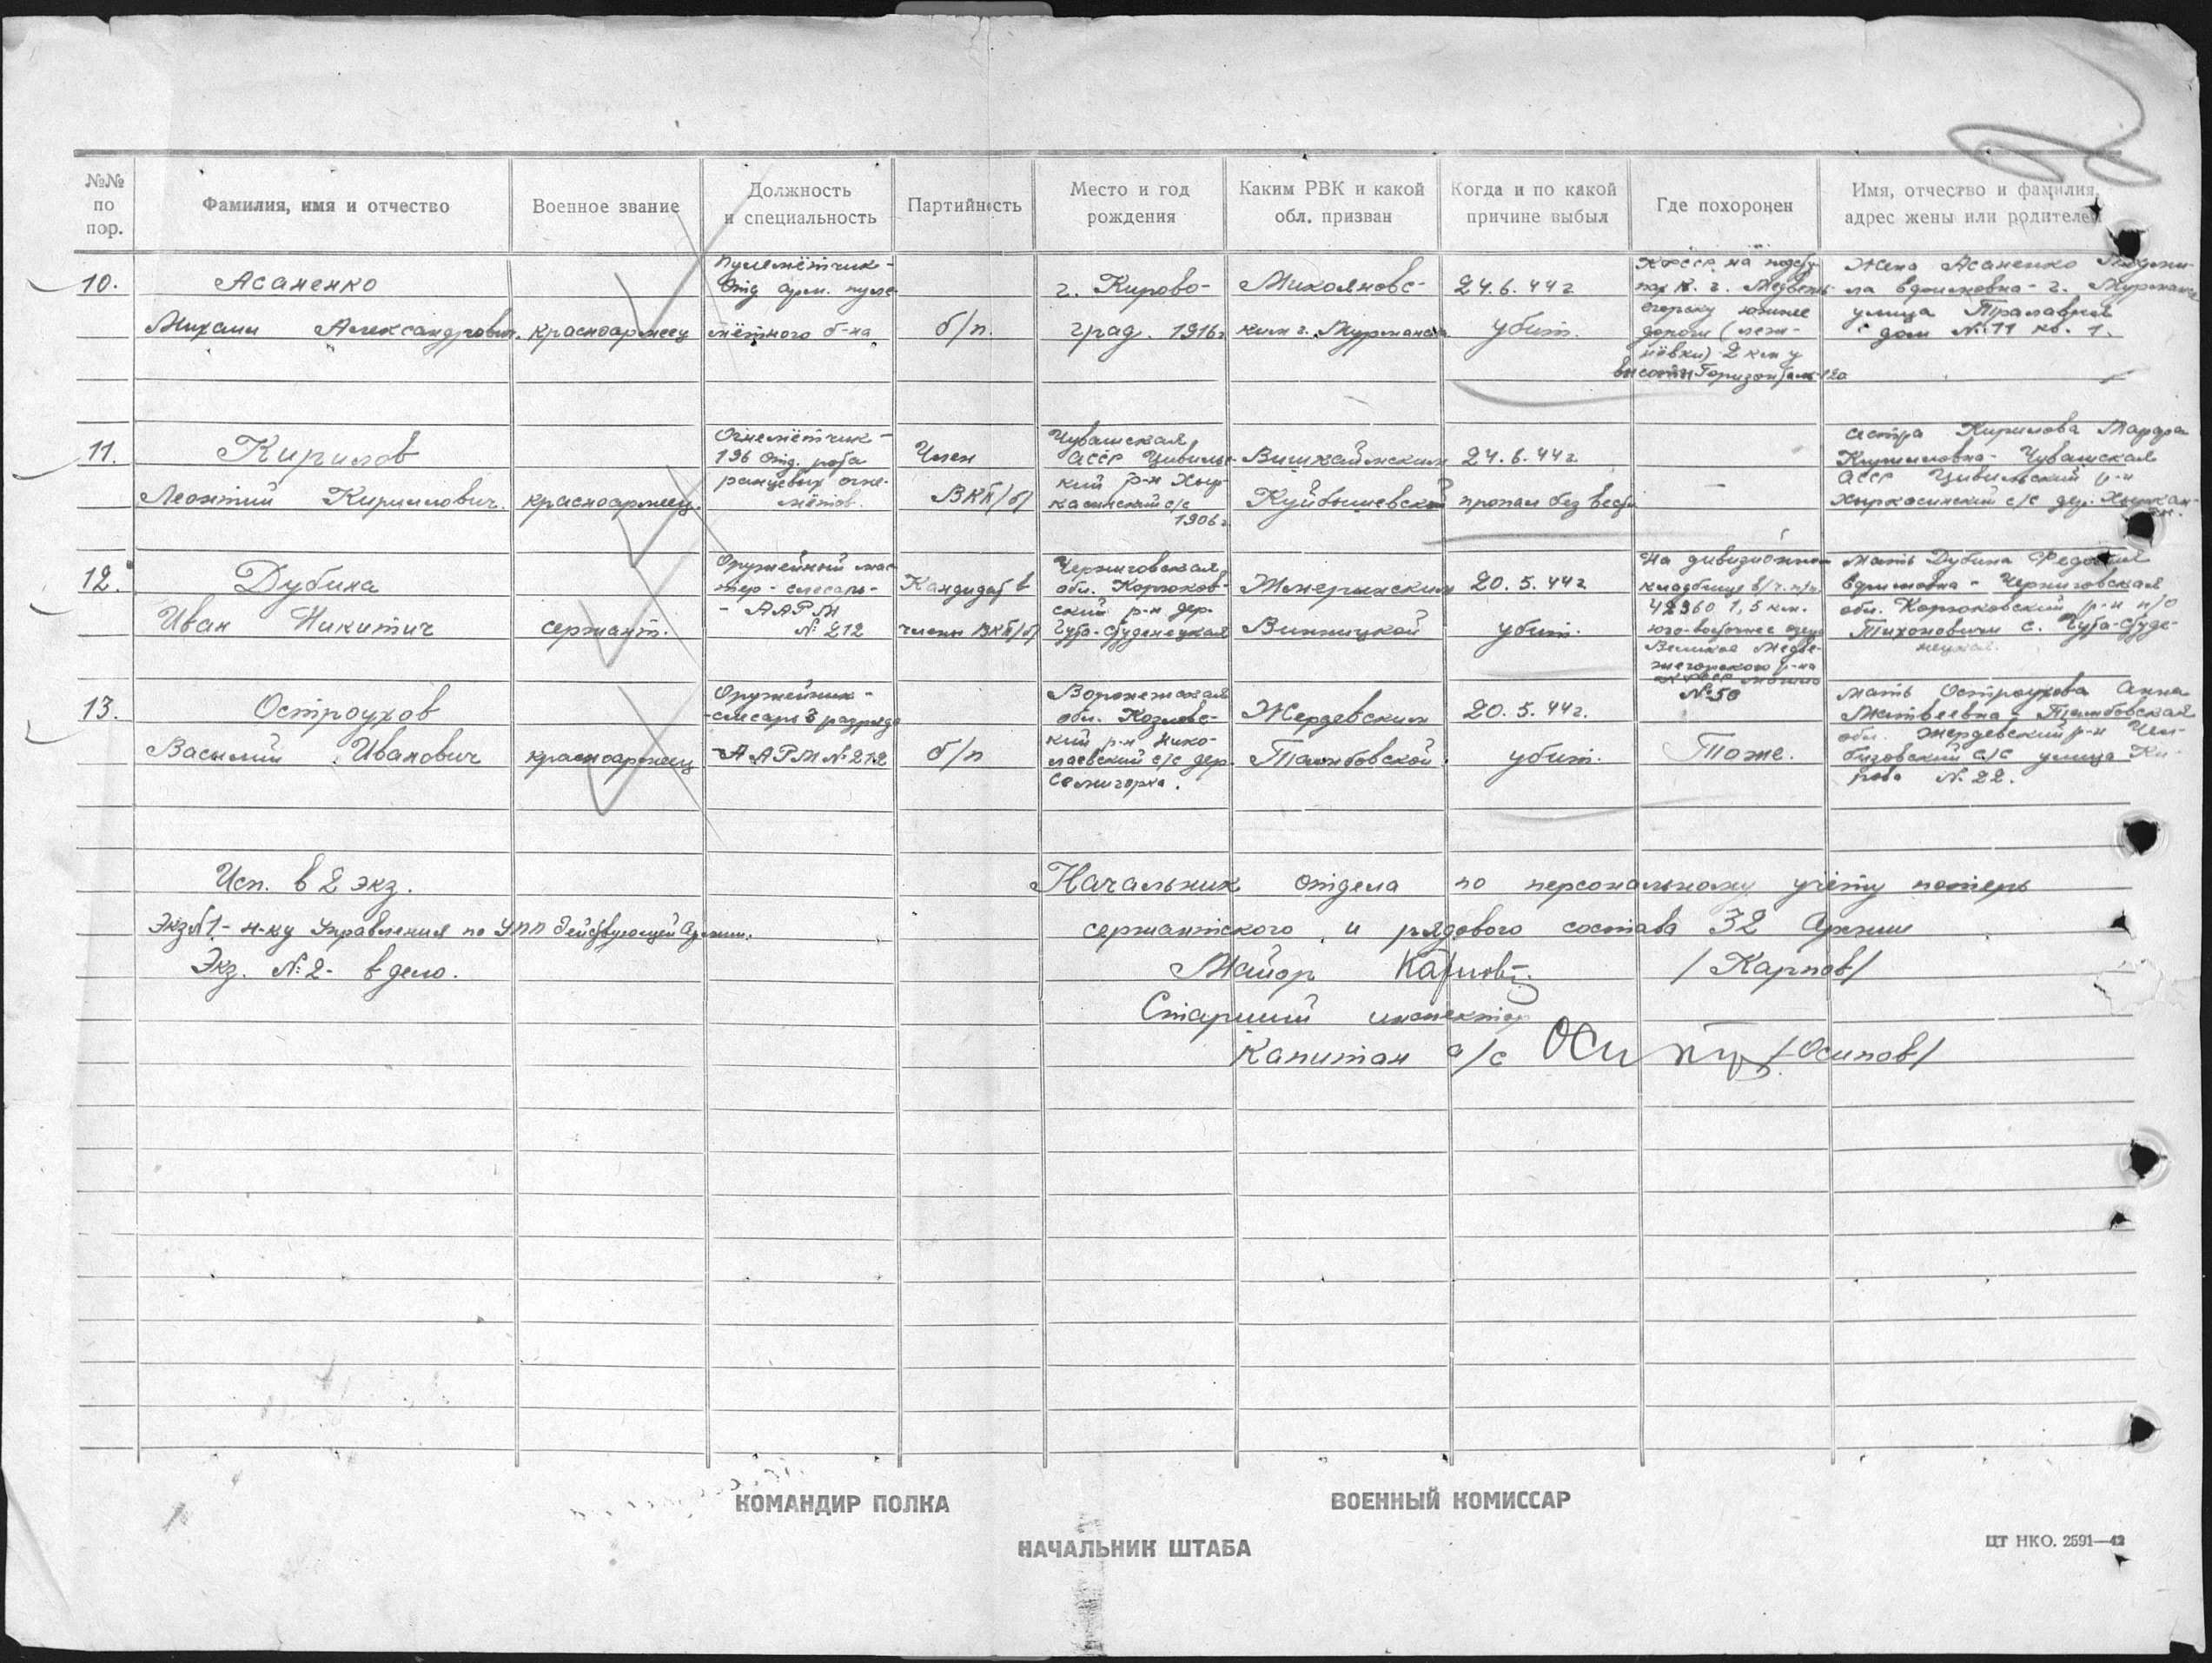 №№ по пор.
Фамилия, имя и отчество
Военное звание
Должность и специальность
Партийность
Место и год рождения
Каким РВК и какой обл. призван
Когда и по какой причине выбыл
Где похоронен
Имя, отчество и фамилия, адрес жены или родителей
10.
Асаненко
Михаил Александрович.
красноармеец
пулемётчик-
отд арм. пуле-
мётного б-на
б/п.
г. Кирово-
град. 1916г
Микояновс-
ким г. Мурманска
24.6.44г
убит.
КФССР на подсту-
пах к. г. Медвежь-
егорску южнее
дороги (леж-
нёвки) 2 км у
высоты Горизонталь 120
Жена Асаненко Людми-
ла г. Мурманск
улица
дом №11 кв. 1.
11.
Кирилов
Леонтий Кириллович.
красноармеец.
Огнемётчик-
196 отд. рота
ранцевых огне-
мётов.
Член
ВКП/б/
Чувашская
АССР Цивильс-
кий р-н Хыр-
касинский с/с
1906г
Вишкаймским
Куйбышевской
24.6.44г
пропал без вести
—
сестра Кирилова Марфа
Кирилловна- Чувашская
АССР Цивильский р-н
Хыркасинский с/с дер. Хыркасы.
12.
Дубина
Иван Никитич
сержант.
Оружейный мас-
тер - слесарь-
- ААРМ
№ 212
Кандидат в
члены ВКП/б/
Черниговская
обл. Корюков-
ский р-н дер.
Гута-Студенецкая
Жмеринским
Винницкой
20.5.44г
убит.
На дивизионном
кладбище в/ч. п/п.
42960 1,5 км.
юго-восточнее озера
Великое Медве-
жегорского р-на
КФССР могила
№50
мать Дубина Федосия
- Черниговская
обл. Корюковский р-н п/о
Тихоновичи с. Гута-Студе-
нецкая.
13.
Остроухов
Василий Иванович
красноармеец
Оружейник-
-слесарь 3 разряда
-ААРМ №212
б/п
Воронежская
обл. Козловс-
кий р-н Нико-
лаевский с/с дер.
Семигорка.
Жердевским
Тамбовской.
20.5.44г.
убит.
Тоже.
мать Остроухова Анна
Матвеевна- Тамбовская
обл. Жердевский р-н Чем-
бизовский с/с улица Ки-
рова №22.
Исп. в 2 экз.
Экз №1- н-ку Управления по УПП действующей армии.
Экз. №2- в дело.
Начальник отдела по персональному учёту потерь
сержантского и рядового состава 32 Армии
Майор Карпов /Карпов/
Старший инспектор
Капитан а/с /Осипов/
КОМАНДИР ПОЛКА
ВОЕННЫЙ КОМИССАР
НАЧАЛЬНИК ШТАБА
ЦТ НКО. 2591—42